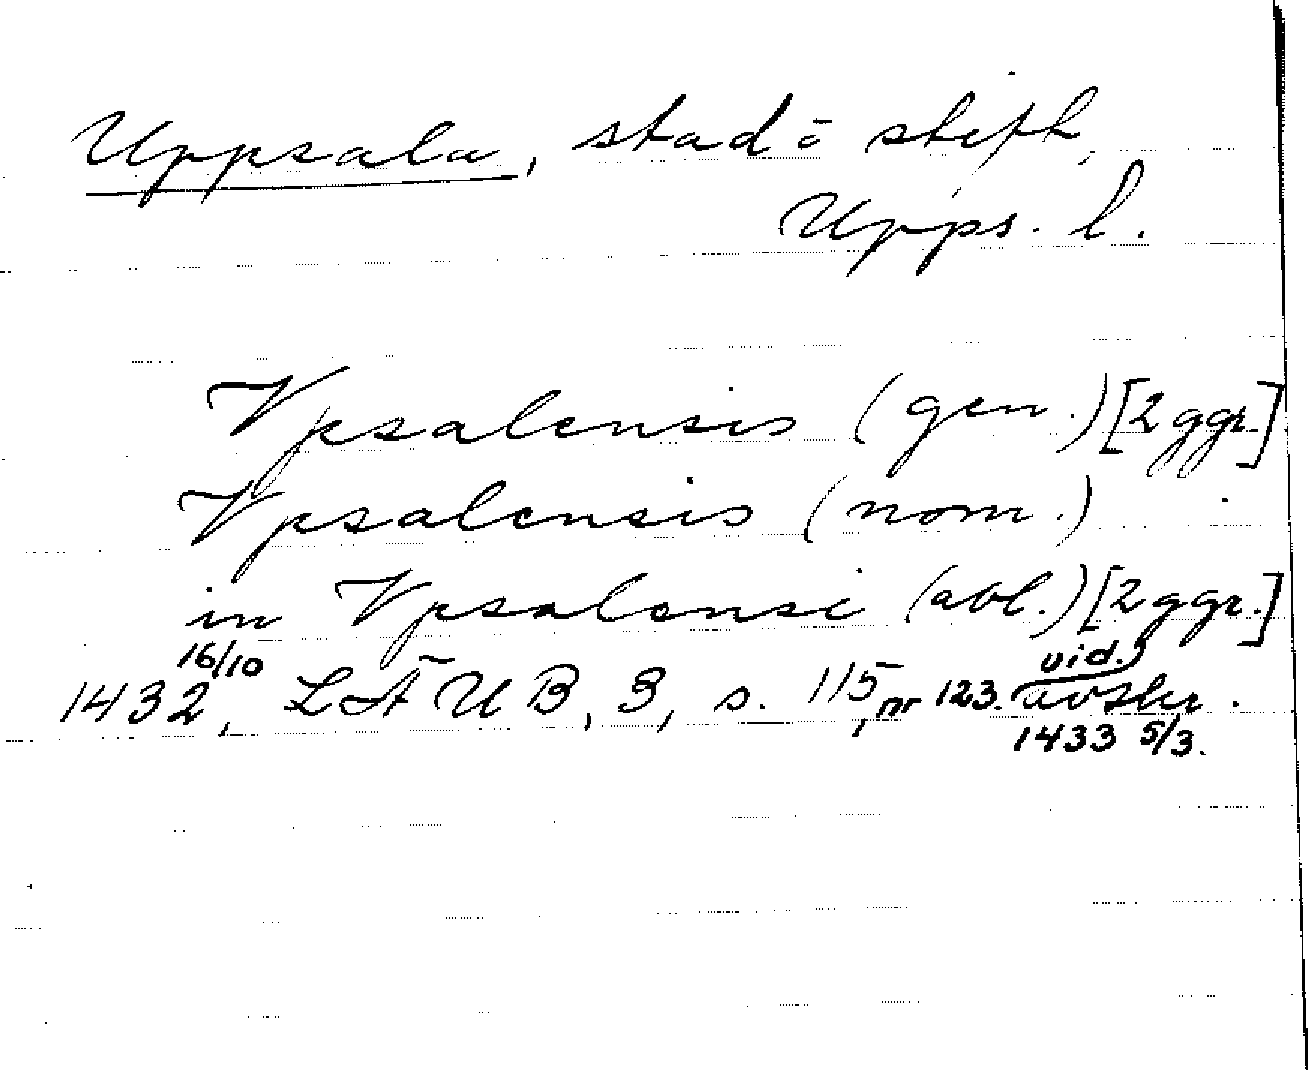 Uppsala, stad o stift,
Upps. l.
Vpsalensis (gen.) [2 ggr.]
Vpsalensis (nom.)
in Vpsalensi (abl.) [2 ggr.]
1432 16/10, LÄUB, 3, s. 115, nr 123. vid. avskr.
1433 5/3.